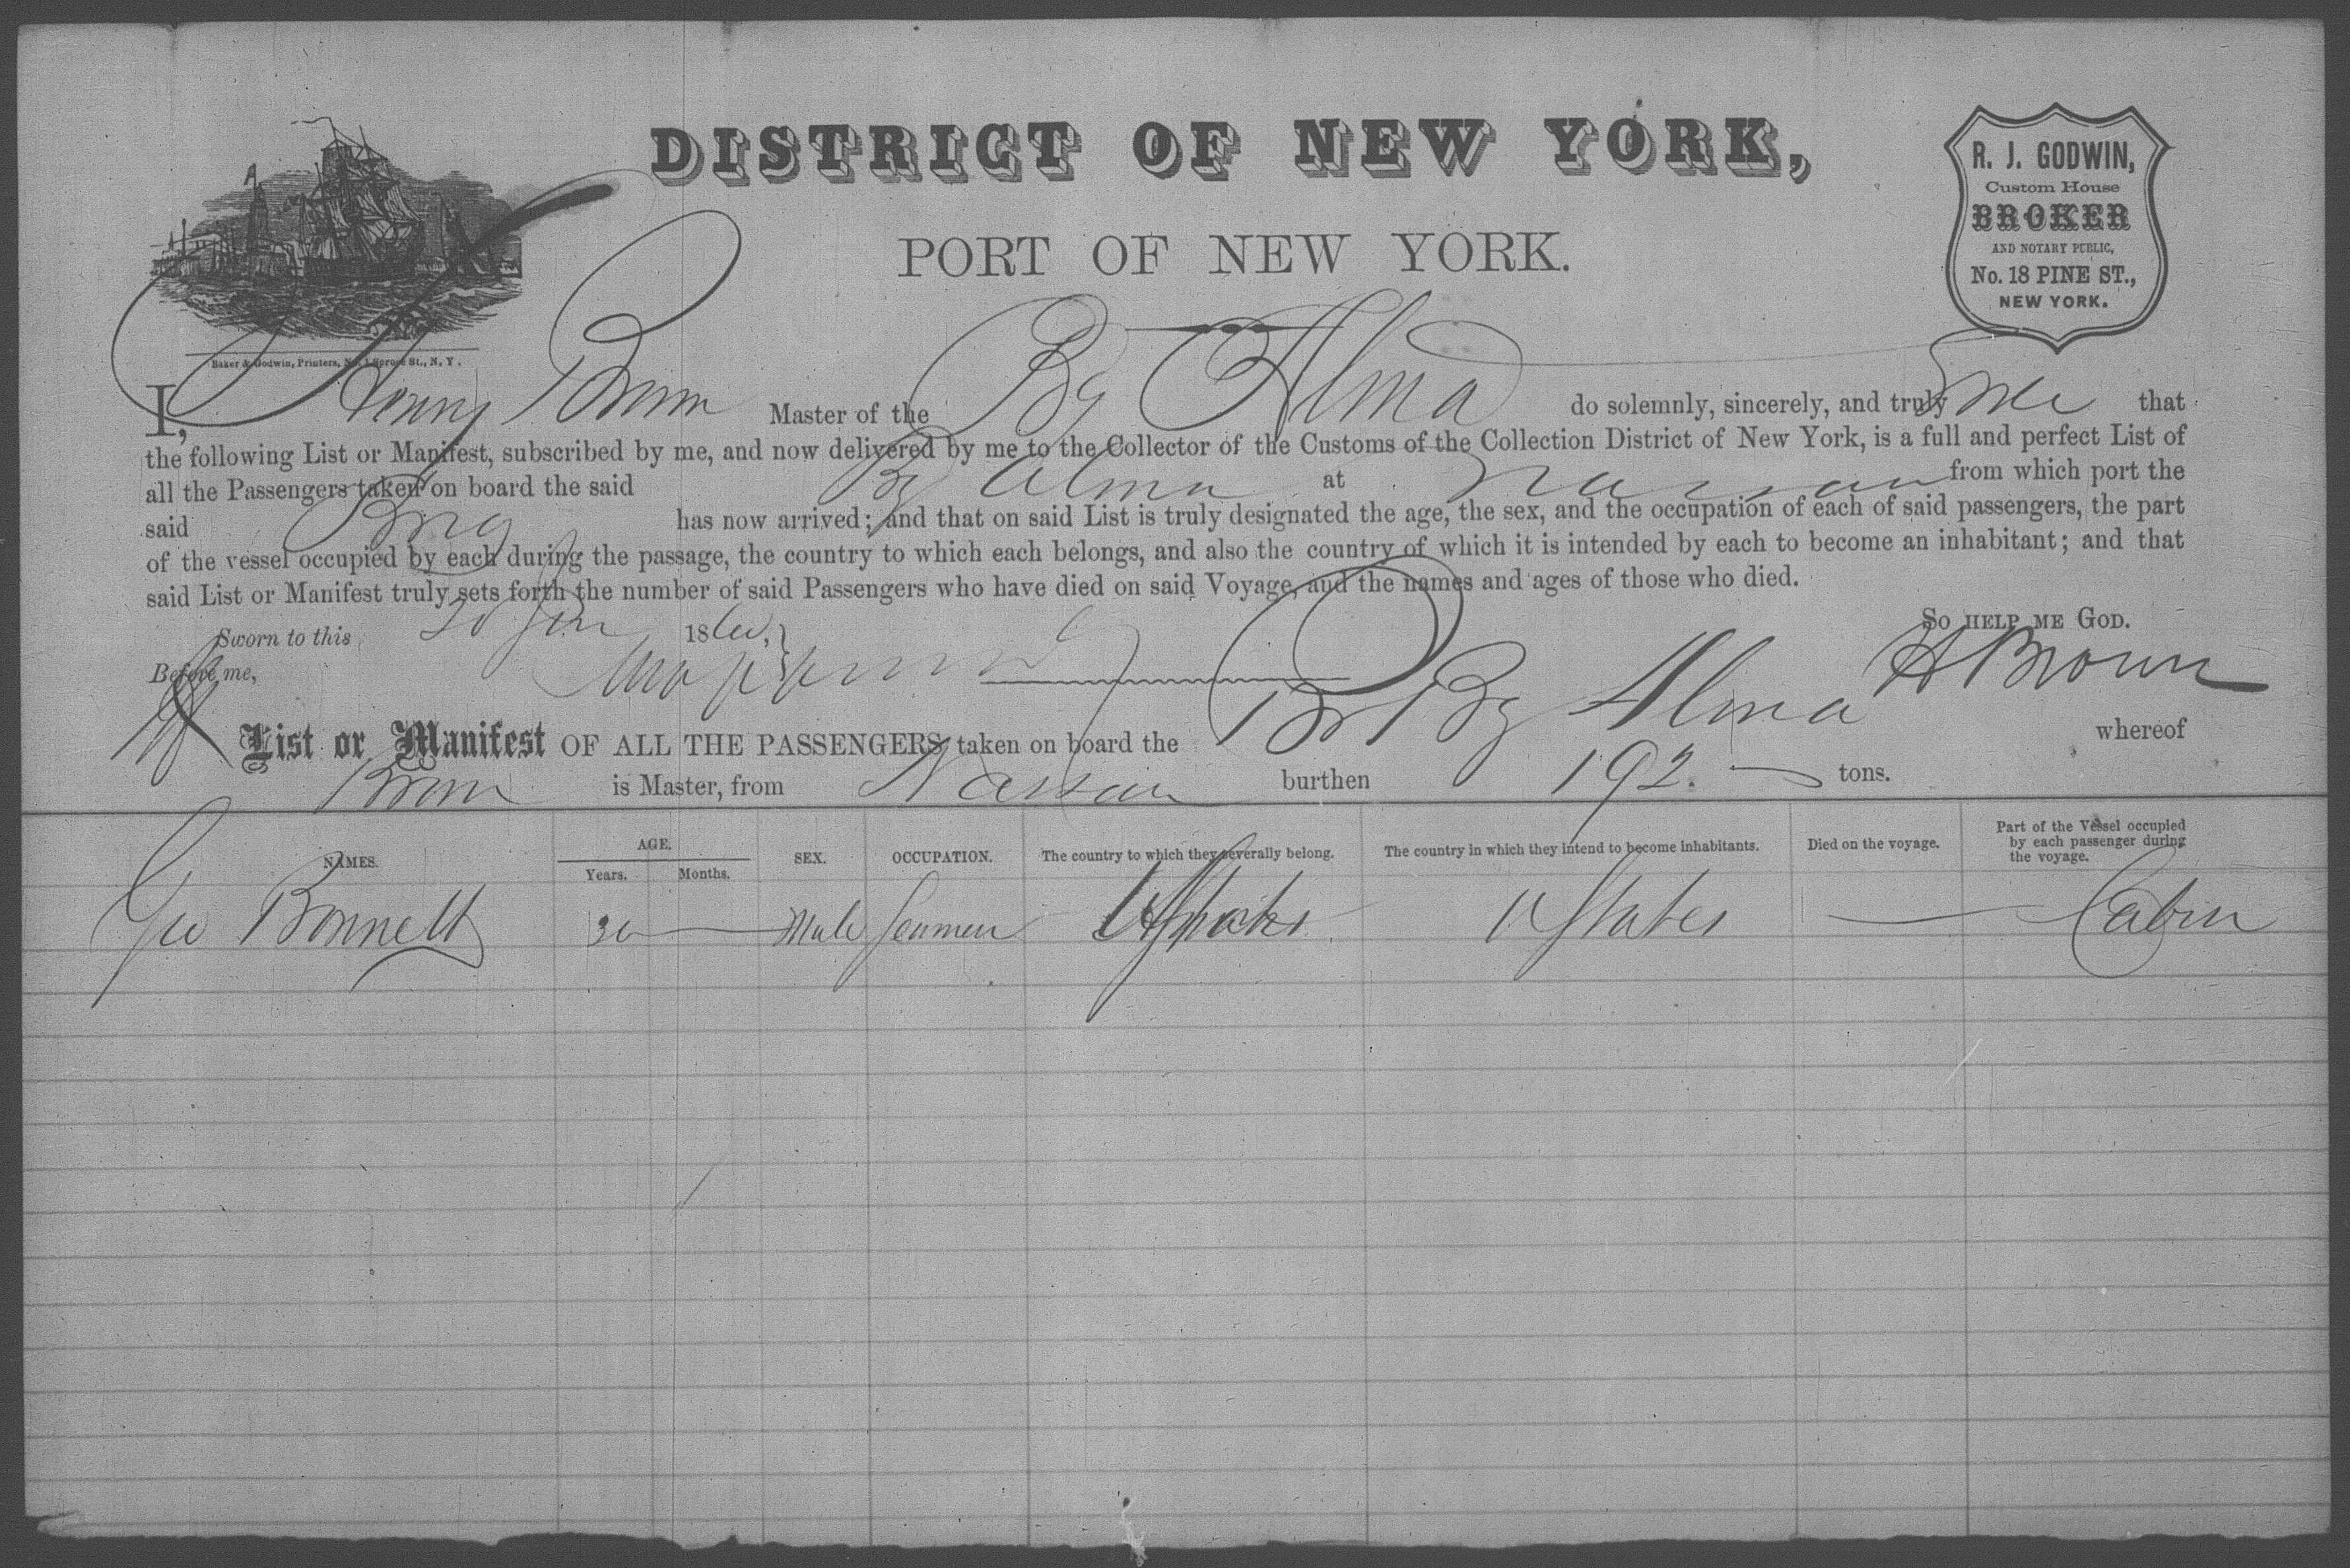 DISTRICT OF NEW YORK,
PORT OF NEW YORK.
R. J. GODWIN,
Custom House
BROKER
AND NOTARY PUBLIC,
No. 18 PINE ST.,
NEW YORK.
Baker & Godwin, Printers, No. 1 Spruce St., N. Y.
I, Henry Brown Master of the Bg Alma do solemnly, sincerely, and truly that
the following List or Manifest, subscribed by me, and now delivered by me to the Collector of the Customs of the Collection District of New York, is a full and perfect List of
all the Passengers taken on board the said Bg Alma at Nassau from which port the
said Brig has now arrived; and that on said List is truly designated the age, the sex, and the occupation of each of said passengers, the part
of the vessel occupied by each during the passage, the country to which each belongs, and also the country of which it is intended by each to become an inhabitant; and that
said List or Manifest truly sets forth the number of said Passengers who have died on said Voyage, and the names and ages of those who died.
So HELP ME GOD.
Sworn to this 20 186
Before me, H Brown
List or Manifest OF ALL THE PASSENGERS taken on board the Br Bg Alma whereof
Brown is Master, from Nassau burthen 192. tons.
NAMES. AGE. Years. Months. SEX. OCCUPATION. The country to which they severally belong. The country in which they intend to become inhabitants. Died on the voyage. Part of the Vessel occupied by each passenger during the voyage.
Geo Bonnett 30 — Male Seamen U States U States — Cabin